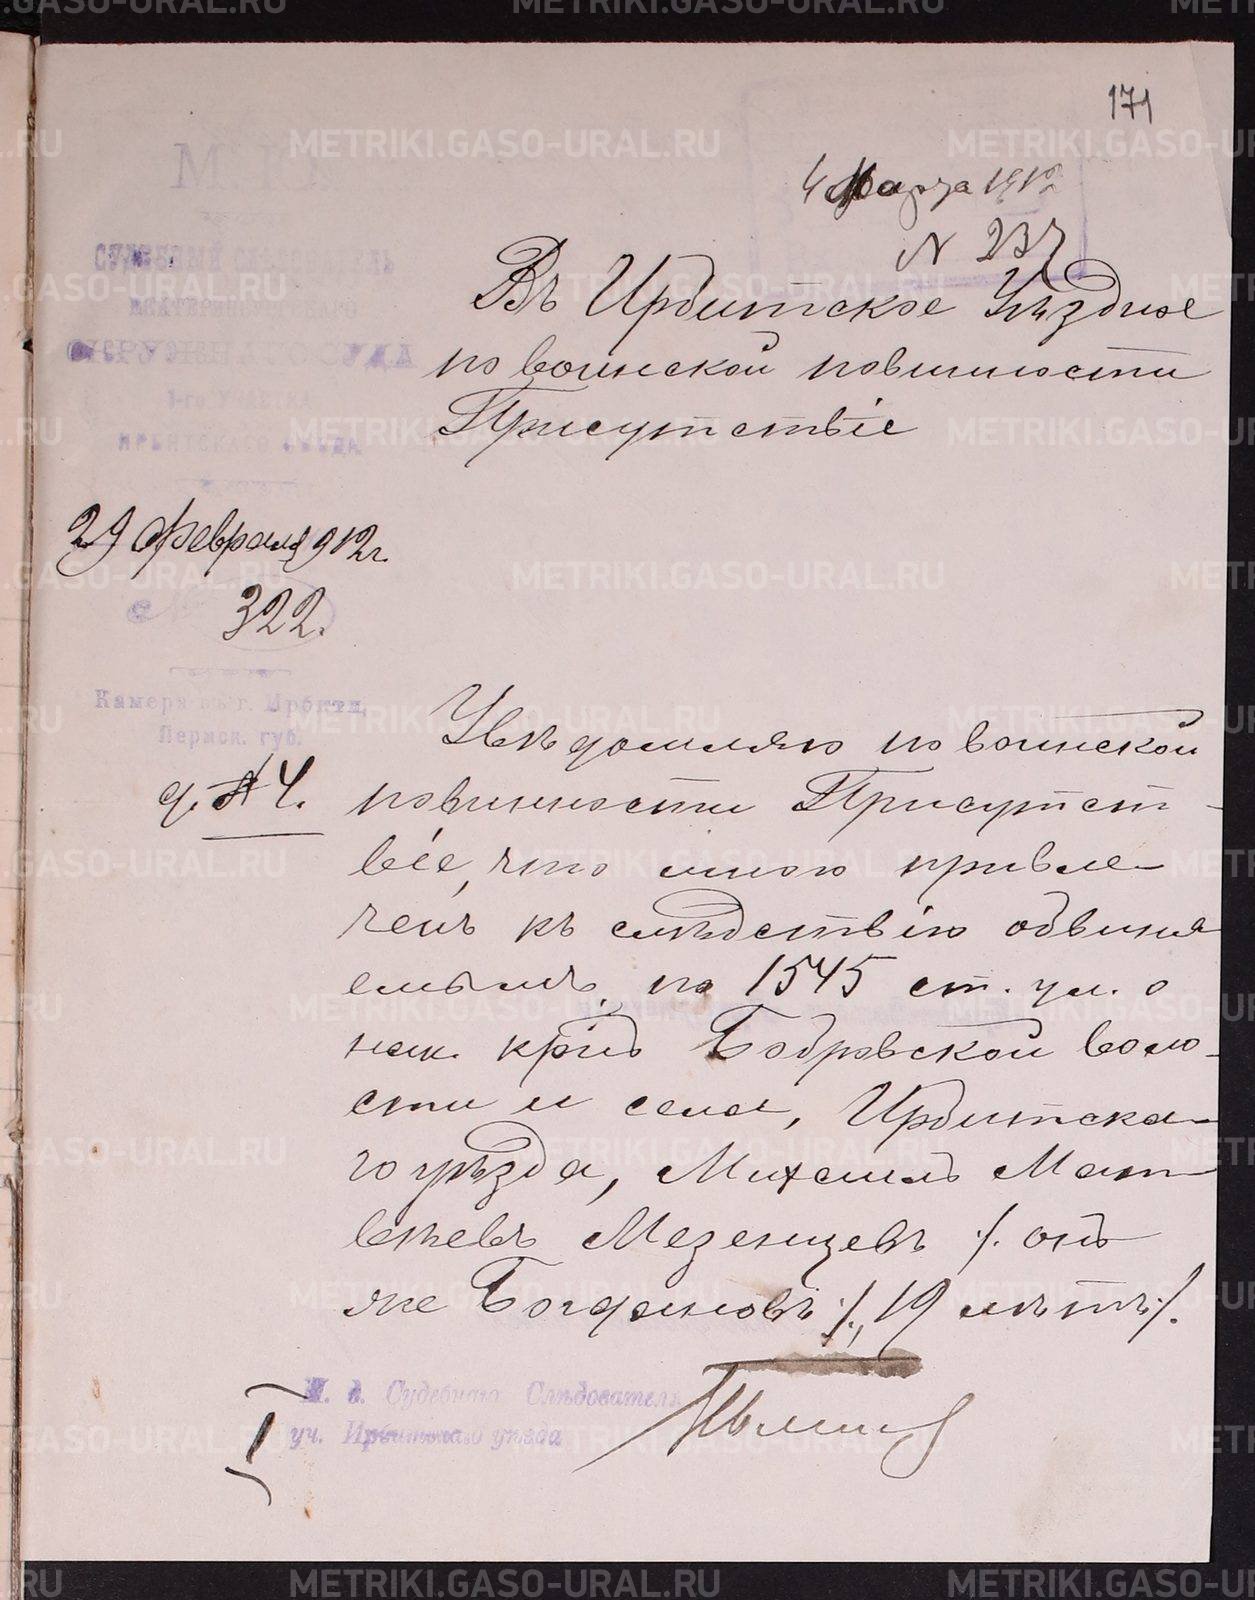 171
4 Марта 1912
N 237
М. Ю.
СУДЕБНЫЙ СЛѢДОВАТЕЛЬ
ЕКАТЕРИНБУРГСКАГО
ОКРУЖНАГО СУДА
1-го УЧАСТКА
ИРБИТСКАГО УѢЗДА
Въ Ирбитское Уѣздное
по воинской повинности
Присутствіе
29 февраля 1912 г.
322.
Камера въ г. Ирбитѣ,
Пермск. губ.
д. № 4.
Увѣдомляю по воинской
повинности Присутст-
віе, что мною привле-
ченъ къ слѣдствію обвиня
емымъ по 1545 ст. ул. о
нак. кр-нъ Бобровской воло-
сти и села, Ирбитска-
го уѣзда, Михаилъ Мат
вѣевъ Мезенцевъ /. онъ
же Богдановъ ./., 19 лѣтъ /.
И. д. Судебнаго Слѣдователя
I уч. Ирбитскаго уѣзда
METRIKI.GASO-URAL.RU